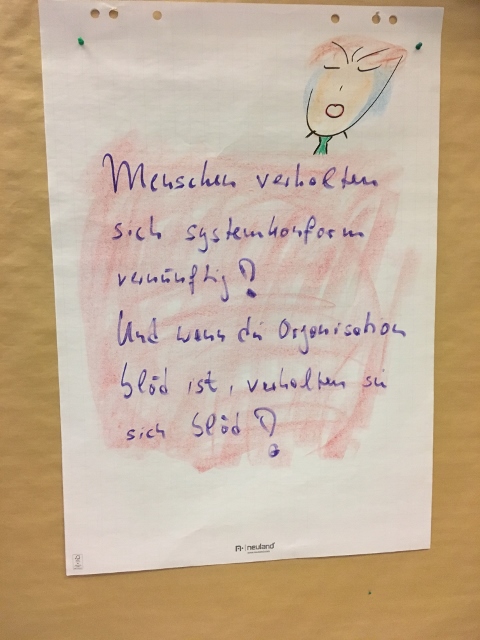 Menschen verhalten
sich systemkonform
vernünftig?
Und wenn die Organisation
blöd ist, verhalten sie
sich blöd?
neuland